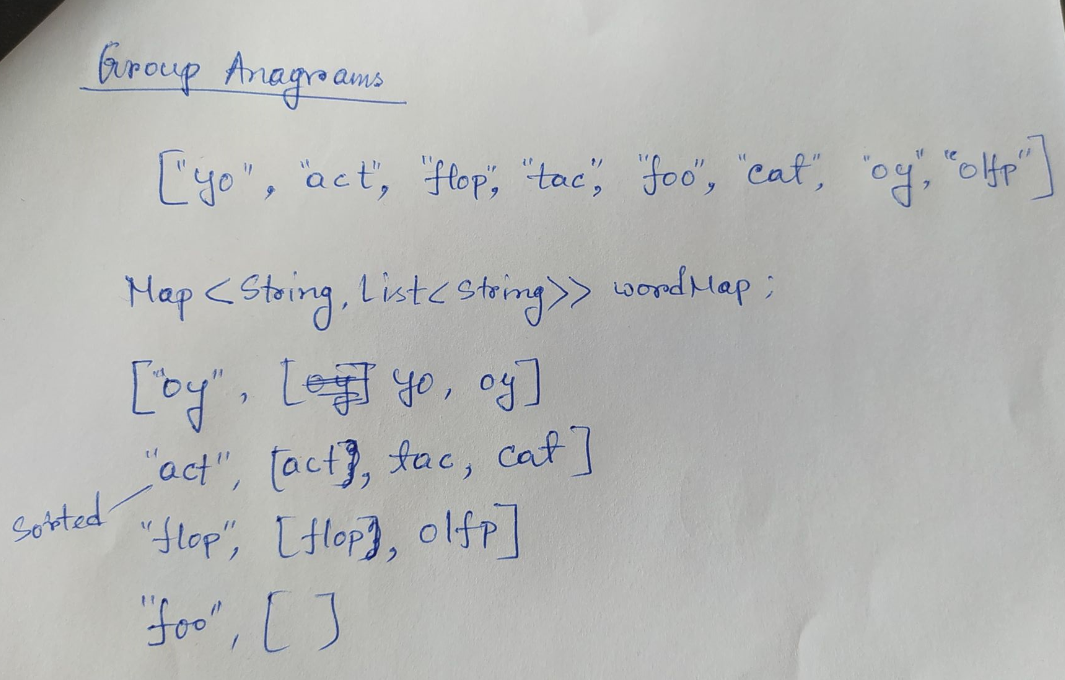 Group Anagrams
["yo", "act", "flop", "tac", "foo", "cat", "oy", "olfp"]
Map<String, List<String>> wordMap;
["oy", [oy] yo, oy]
"act", [act], tac, cat]
Sorted
"flop", [flop], olfp]
"foo", [ ]